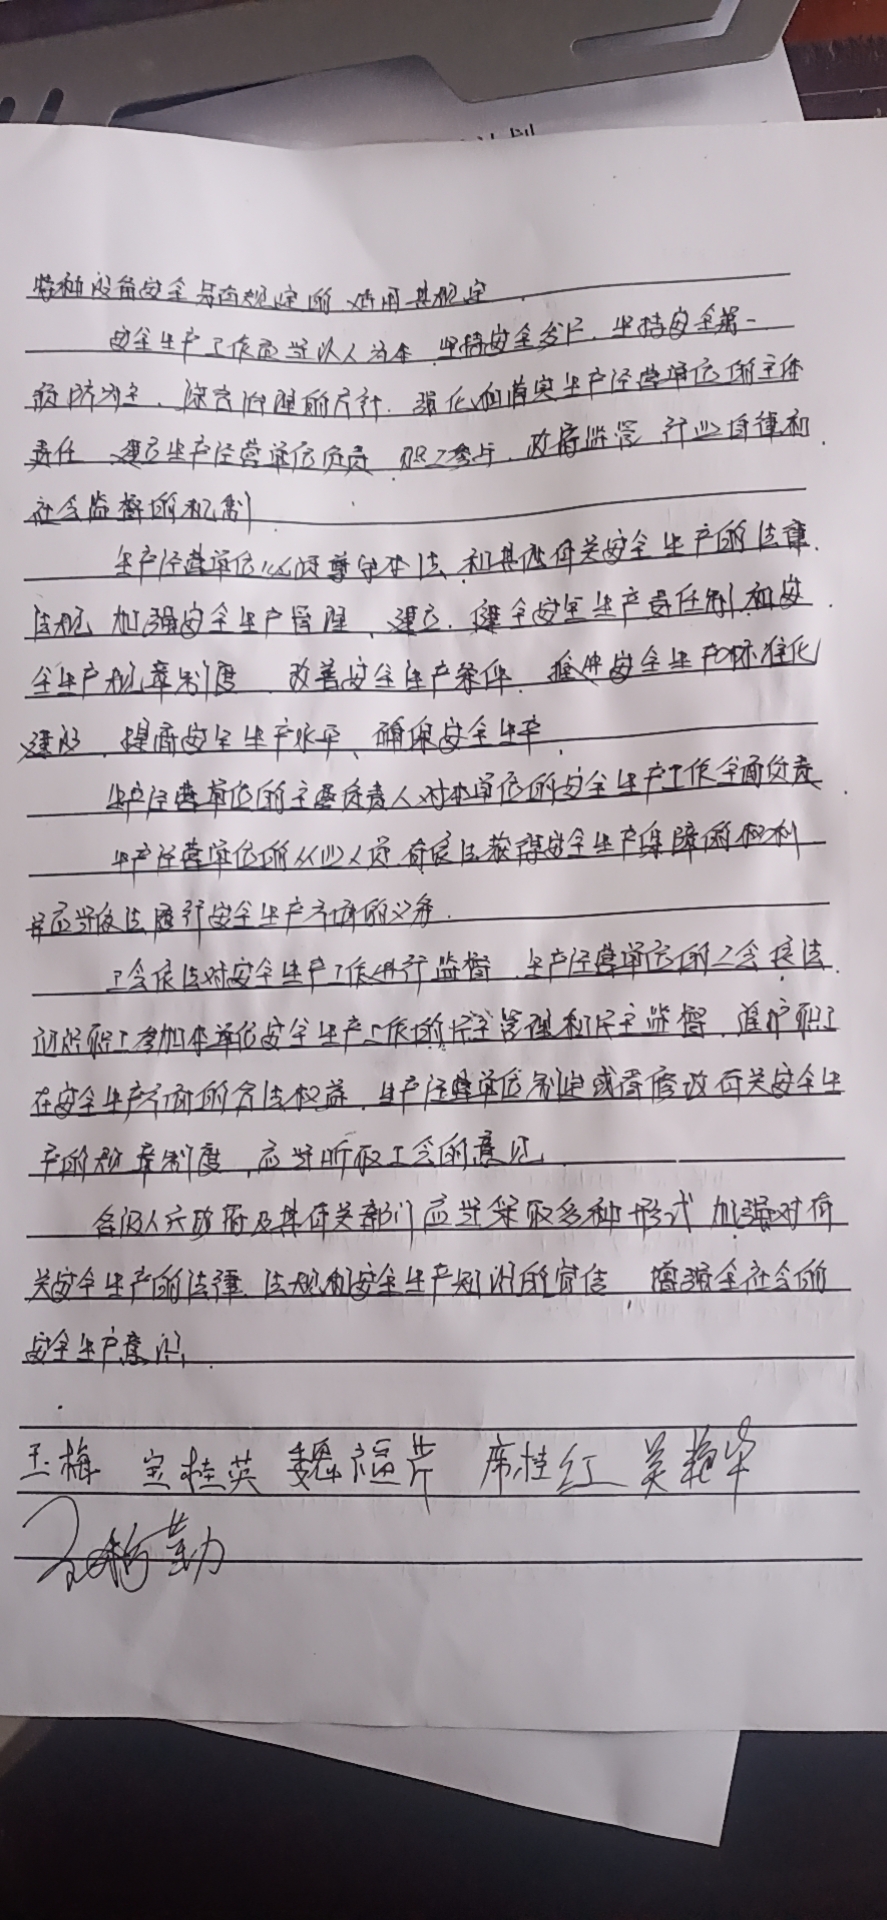 计划
特种设备安全另有规定的,适用其规定.
安全生产工作应当以人为本,坚持安全发展,坚持安全第一
预防为主、综合治理的方针,强化和落实生产经营单位的主体
责任,建立生产经营单位负责、职工参与、政府监管、行业自律和
社会监督的机制
生产经营单位必须遵守本法和其他有关安全生产的法律.
法规,加强安全生产管理,建立、健全安全生产责任制和安
全生产规章制度,改善安全生产条件,推进安全生产标准化
建设,提高安全生产水平,确保安全生产.
生产经营单位的主要负责人对本单位的安全生产工作全面负责.
生产经营单位的从业人员有依法获得安全生产保障的权利
并应当依法履行安全生产方面的义务.
工会依法对安全生产工作进行监督.生产经营单位的工会依法.
组织职工参加本单位安全生产工作的民主管理和民主监督,维护职工
在安全生产方面的合法权益.生产经营单位制定或者修改有关安全生
产的规章制度,应当听取工会的意见.
各级人民政府及其有关部门应当采取多种形式,加强对有
关安全生产的法律、法规和安全生产知识的宣传,增强全社会的
安全生产意识.
王梅 宝桂英 魏福芹 席桂红 吴艳华